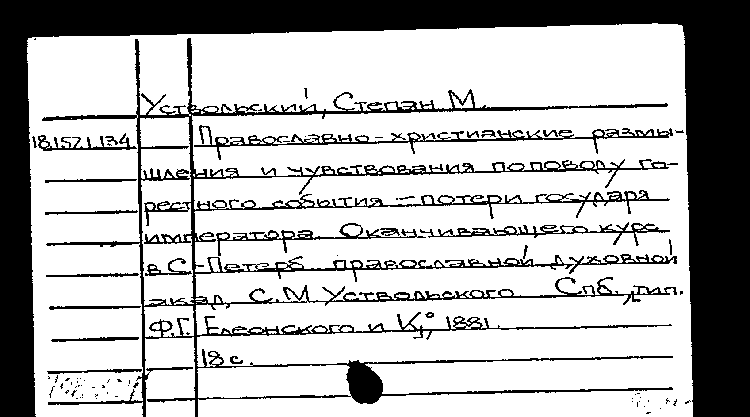 Уствольский, Степан М.
18.157.1.134 Православно-христианские размы-
шления и чувствования по поводу го-
рестного события - потери государя
императора. Оканчивающего курс
в С.-Петерб. православной духовной
акад. С.М. Уствольского. Спб., тип.
Ф.Г. Елеонского и К°, 1881.
18 с.